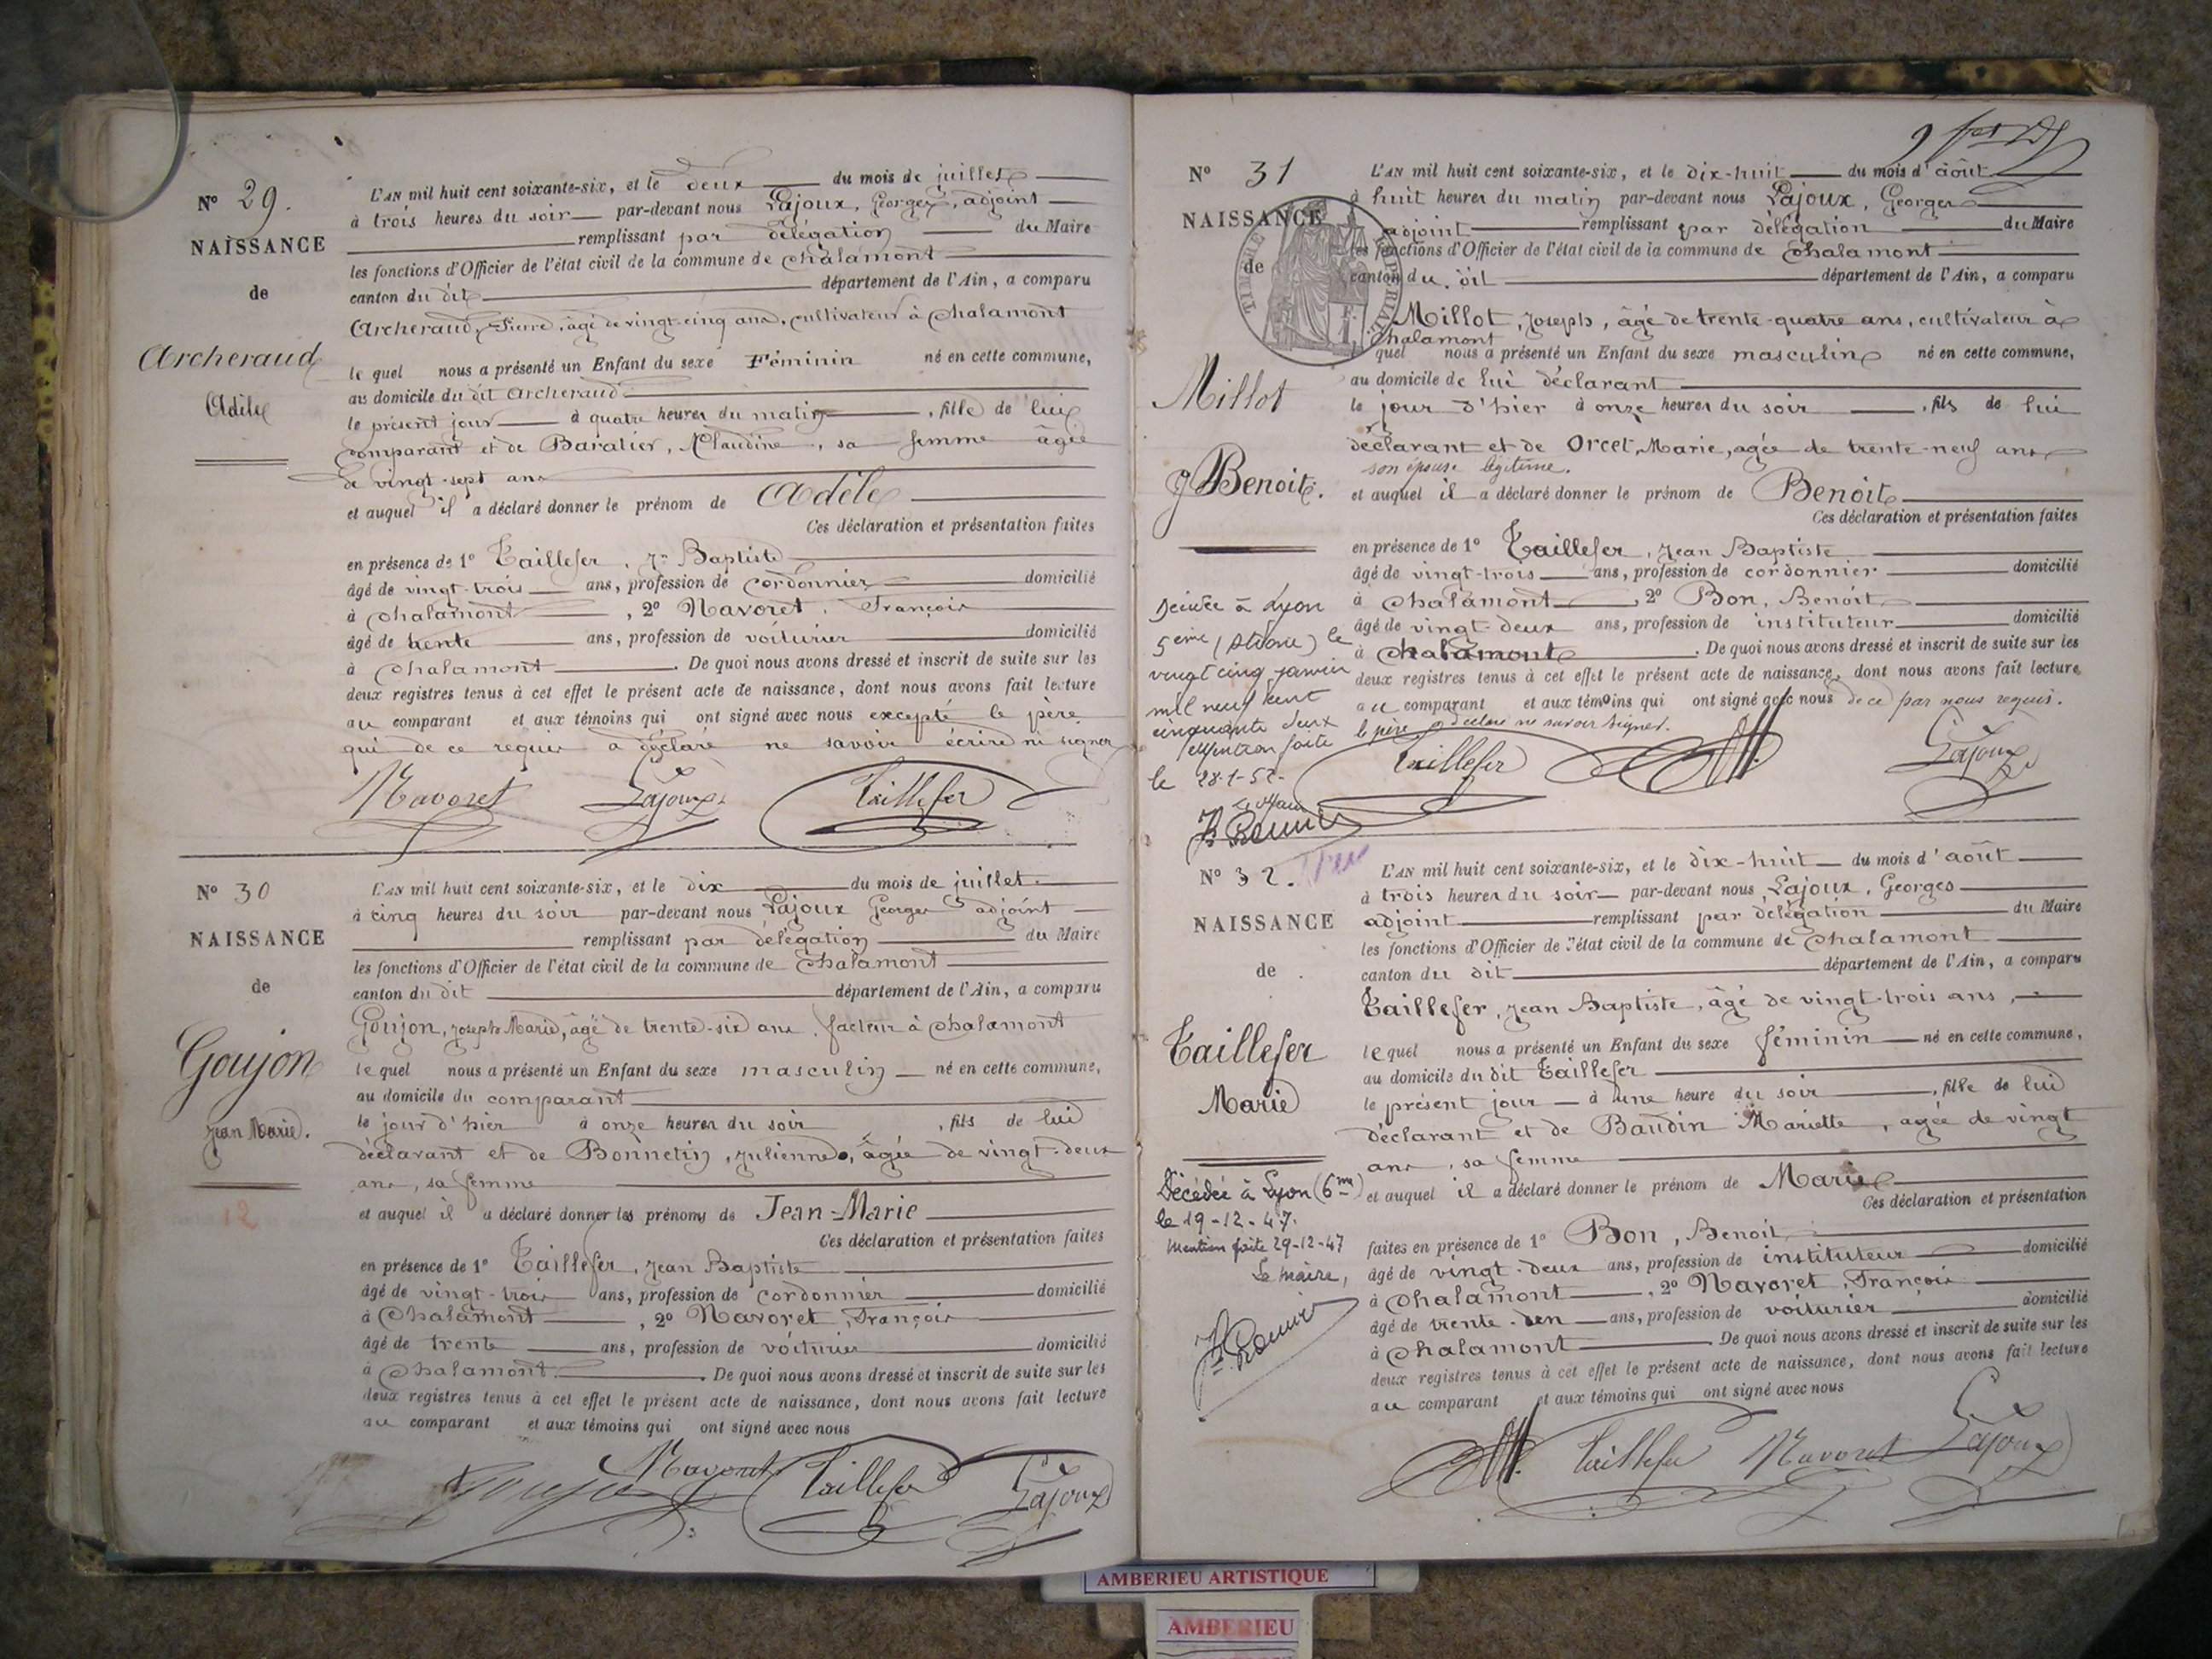 N° 29.
NAISSANCE
de
Archeraud
Adèle
L'AN mil huit cent soixante-six, et le deux du mois de juillet
à trois heures du soir par-devant nous Lajoux, Georges, adjoint
remplissant par délégation du Maire
les fonctions d'Officier de l'état civil de la commune de Chalamont
canton du dit département de l'Ain, a comparu
Archeraud, Pierre, âgé de vingt-cinq ans, cultivateur à Chalamont
le quel nous a présenté un Enfant du sexe Féminin né en cette commune,
au domicile du dit Archeraud
le présent jour à quatre heures du matin, fille de lui
comparant et de Baratier, Claudine, sa femme âgée
de vingt-sept ans
et auquel il a déclaré donner le prénom de Adèle
Ces déclaration et présentation faites
en présence de 1° Taillefer, Jn Baptiste
âgé de vingt-trois ans, profession de cordonnier domicilié
à Chalamont, 2° Navoret, François
âgé de trente ans, profession de voiturier domicilié
à Chalamont. De quoi nous avons dressé et inscrit de suite sur les
deux registres tenus à cet effet le présent acte de naissance, dont nous avons fait lecture
au comparant et aux témoins qui ont signé avec nous excepté le père
qui de ce requis a déclaré ne savoir écrire ni signer
Navoret Lajoux Taillefer
N° 30
NAISSANCE
de
Goujon
Jean Marie.
12
L'AN mil huit cent soixante-six, et le dix du mois de juillet
à cinq heures du soir par-devant nous Lajoux Georges adjoint
remplissant par délégation du Maire
les fonctions d'Officier de l'état civil de la commune de Chalamont
canton du dit département de l'Ain, a comparu
Goujon, Joseph Marie, âgé de trente-six ans, facteur à Chalamont
le quel nous a présenté un Enfant du sexe masculin né en cette commune,
au domicile du comparant
le jour d'hier à onze heures du soir, fils de lui
déclarant et de Bonnetin, Julienne, âgée de vingt-deux
ans, sa femme
et auquel il a déclaré donner les prénoms de Jean-Marie
Ces déclaration et présentation faites
en présence de 1° Taillefer, Jean Baptiste
âgé de vingt-trois ans, profession de cordonnier domicilié
à Chalamont, 2° Navoret, François
âgé de trente ans, profession de voiturier domicilié
à Chalamont. De quoi nous avons dressé et inscrit de suite sur les
deux registres tenus à cet effet le présent acte de naissance, dont nous avons fait lecture
au comparant et aux témoins qui ont signé avec nous
Goujon Navoret Taillefer Lajoux
N° 31
NAISSANCE
de
TIMBRE IMPÉRIAL
Millot
Benoit.
Décédé à Lyon
5ème (Rhône) le
vingt cinq janvier
mil neuf cent
cinquante deux
Mention faite
le 28-1-52
Le Maire
L'AN mil huit cent soixante-six, et le dix-huit du mois d'août
à huit heures du matin par-devant nous Lajoux, Georges
adjoint remplissant par délégation du Maire
les fonctions d'Officier de l'état civil de la commune de Chalamont
canton du dit département de l'Ain, a comparu
Millot, Joseph, âgé de trente-quatre ans, cultivateur à
Chalamont
quel nous a présenté un Enfant du sexe masculin né en cette commune,
au domicile de lui déclarant
le jour d'hier à onze heures du soir, fils de lui
déclarant et de Orcet, Marie, agée de trente-neuf ans
son épouse légitime.
et auquel il a déclaré donner le prénom de Benoit
Ces déclaration et présentation faites
en présence de 1° Taillefer, Jean Baptiste
âgé de vingt-trois ans, profession de cordonnier domicilié
à Chalamont, 2° Bon, Benoit
âgé de vingt-deux ans, profession de instituteur domicilié
à Chalamont. De quoi nous avons dressé et inscrit de suite sur les
deux registres tenus à cet effet le présent acte de naissance, dont nous avons fait lecture
au comparant et aux témoins qui ont signé avec nous de ce par nous requis.
le père a déclaré ne savoir signer.
Taillefer Lajoux
N° 32.
NAISSANCE
de
Taillefer
Marie
Décédée à Lyon (6me)
le 19-12-47.
Mention faite 29-12-47
Le Maire,
L'AN mil huit cent soixante-six, et le dix-huit du mois d'août
à trois heures du soir par-devant nous Lajoux, Georges
adjoint remplissant par délégation du Maire
les fonctions d'Officier de l'état civil de la commune de Chalamont
canton du dit département de l'Ain, a comparu
Taillefer, Jean Baptiste, âgé de vingt-trois ans,
lequel nous a présenté un Enfant du sexe féminin né en cette commune,
au domicile du dit Taillefer
le présent jour à une heure du soir, fille de lui
déclarant et de Baudin Mariette, agée de vingt
ans, sa femme
et auquel il a déclaré donner le prénom de Marie
Ces déclaration et présentation
faites en présence de 1° Bon, Benoit
âgé de vingt-deux ans, profession de instituteur domicilié
à Chalamont, 2° Navoret, François
âgé de trente-un ans, profession de voiturier domicilié
à Chalamont De quoi nous avons dressé et inscrit de suite sur les
deux registres tenus à cet effet le présent acte de naissance, dont nous avons fait lecture
au comparant et aux témoins qui ont signé avec nous
Taillefer Navoret Lajoux
AMBERIEU ARTISTIQUE
AMBERIEU